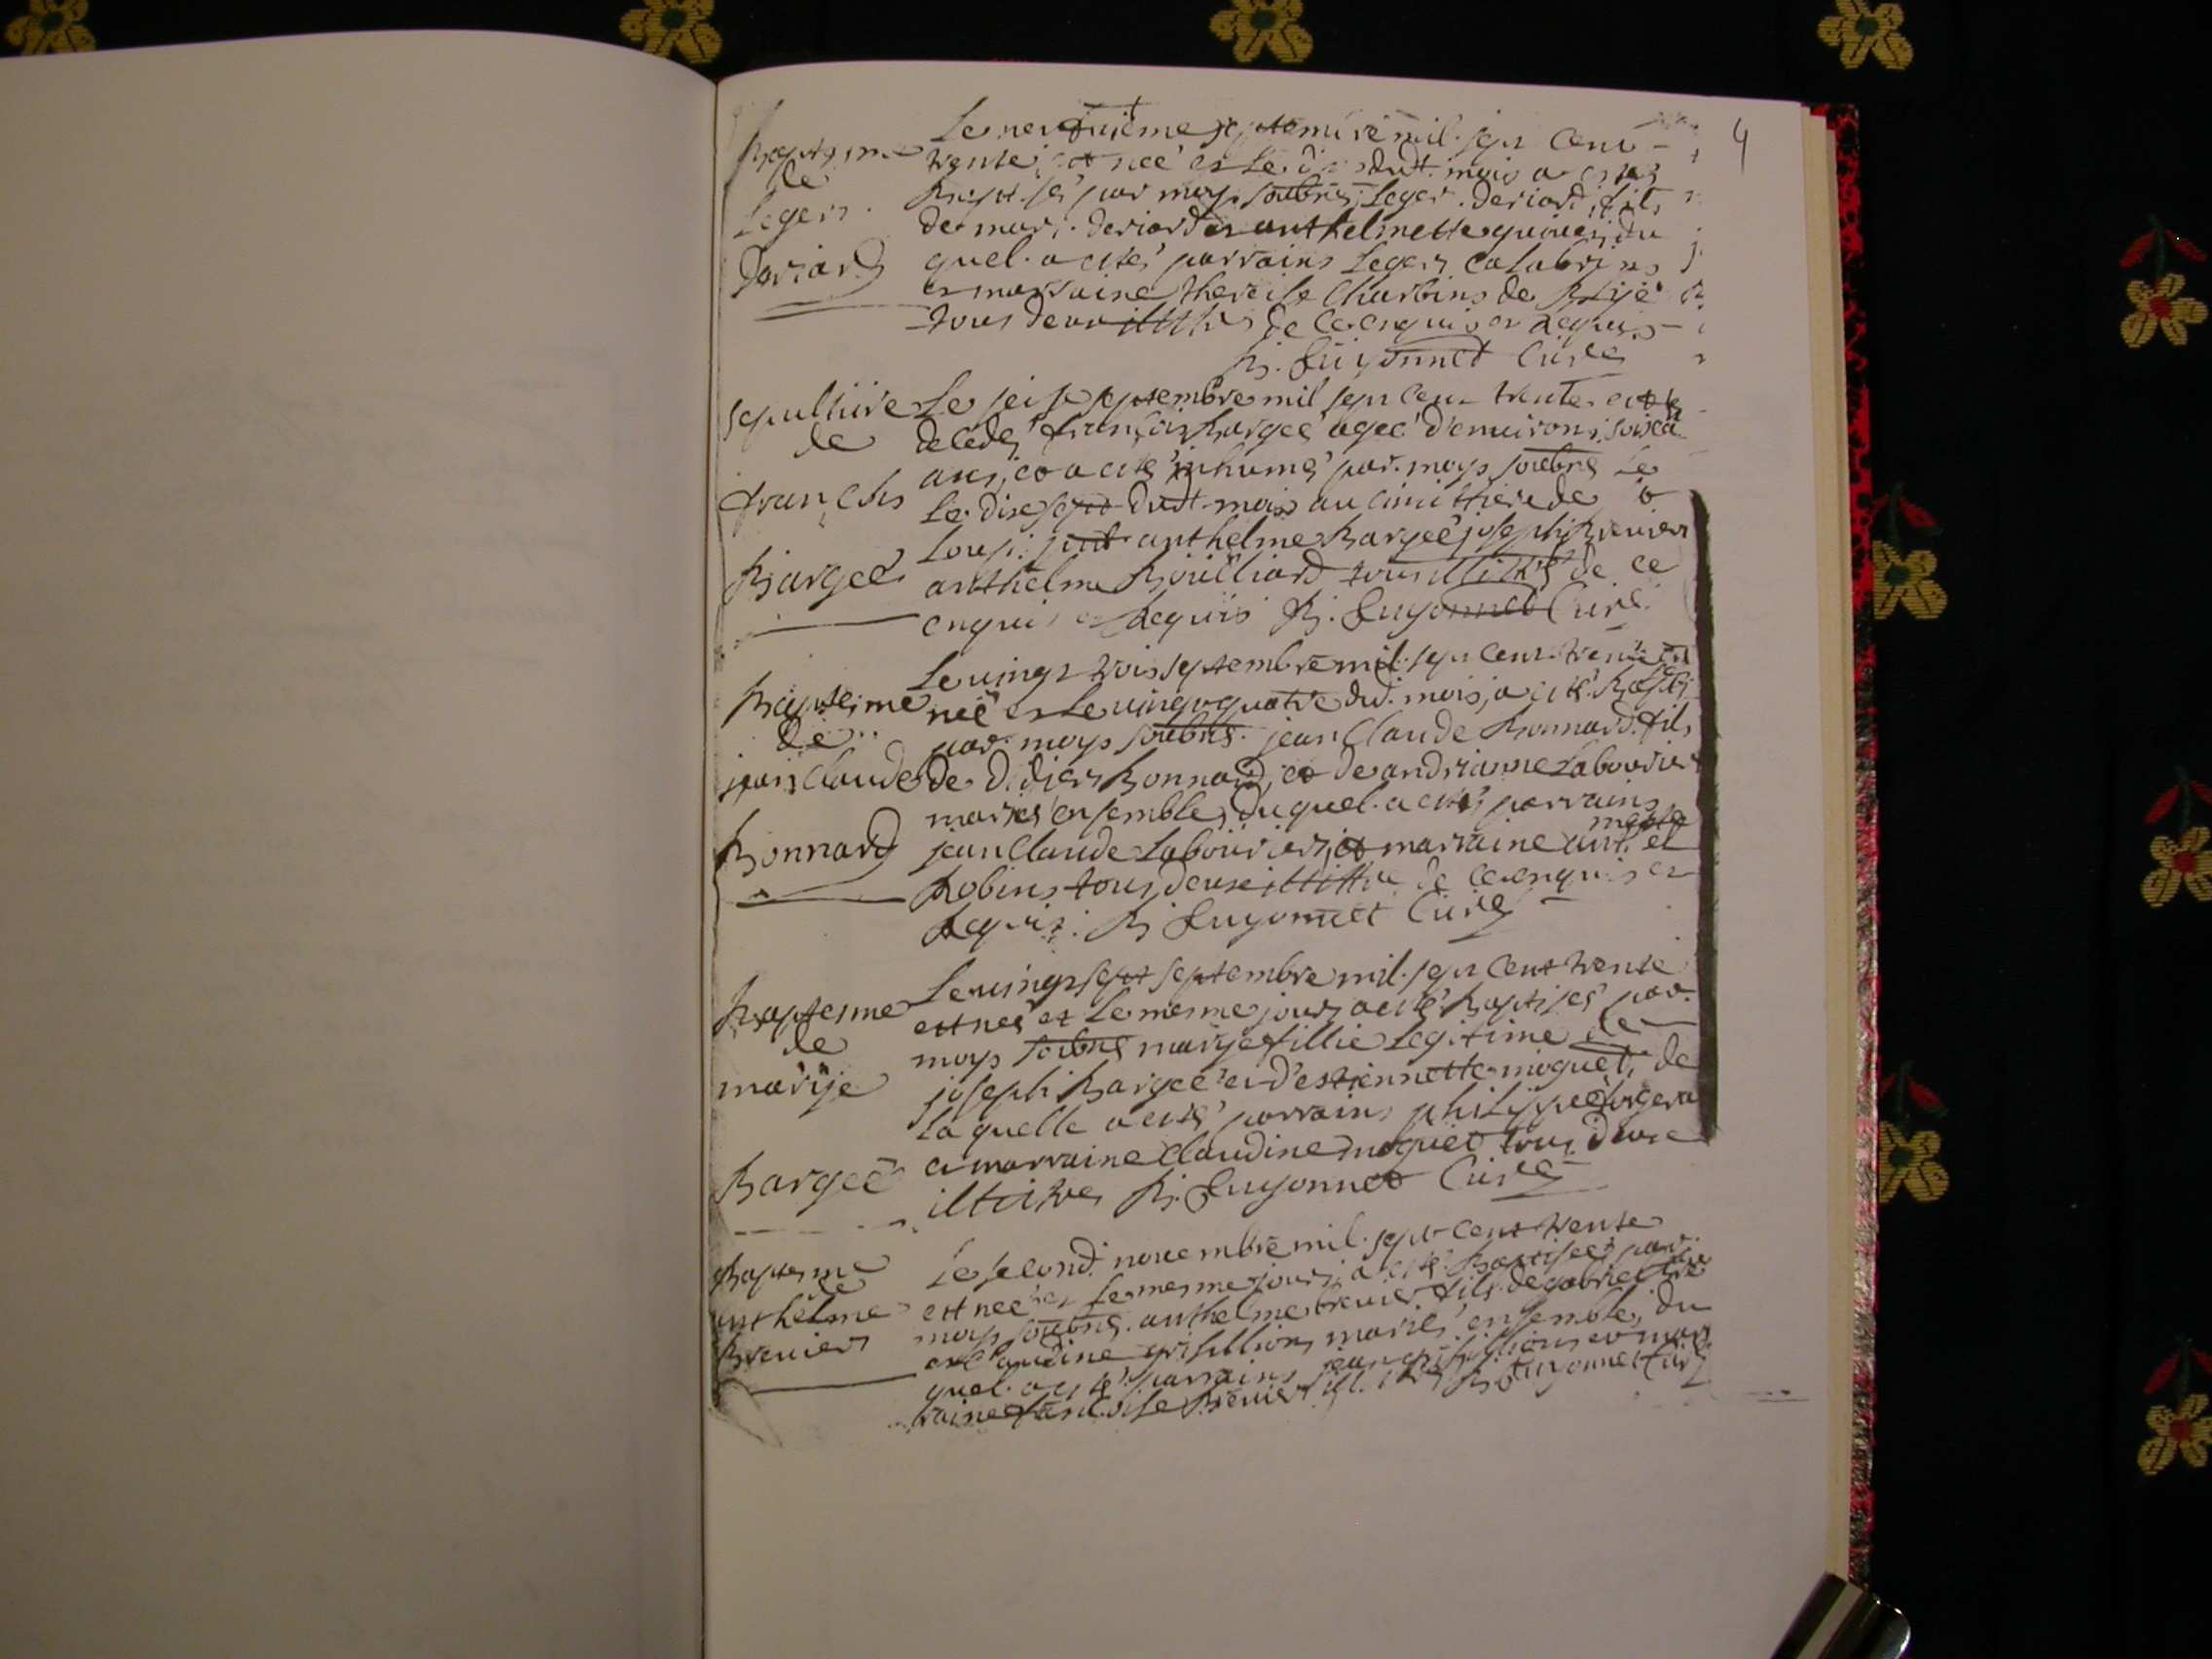 4
Baptesme
de
Leger
Deriard
Le neufuième septembre mil sept cent
trente est neé et le dudt mois a estez
Baptisé par moy soubné Leger deriard fils
de marc deriard et anthelmette du
quel a esté parrains Leger Calabrins
et marraine therese Charbins de
tous deux illittres de ce enquis et Requis
B. Guyonnet Curé
sepulture
de
françois
Bargeé
Le seise septembre mil sept cent trente est
decedé françois Bargeé ageé d'enuirons soisca
ans, et a esté inhumé par moy soubné Le
Le dixsept dudt mois au cimittiere de
Loup. pnt anthelme Bargeé joseph Breuier
anthelme Bouilliard tous illitrés de ce
enquis et Requis B. Guyonnet Curé
Baptesme
de
jean Claude
Bonnard
Le uingt trois septembre mil sept cent trente est
neé et Le uingt quatre dud. mois, a esté Baptisé
par moy soubné jean Claude Bonnard fils
de Didier Bonnard, et de andrianne Labourier
mariés ensemble, duquel a esté parrains
jean Claude Labourier, et marraine ant. el
mette
Robins tous deux illittre de ce enquis et
Requis. B Guyonnet Curé
Baptesme
de
marije
Bargeé
Le uingt sept septembre mil sept cent trente
est neé et Le mesme jour, a esté Baptiseé par
moy soubné marije fillie Legitime de
joseph Bargeé et d'estiennette moguet, de
La quelle a esté parrains philippe
et marraine Claudine moguet tous deux
illitres B. Guyonnet Curé
Baptesme
de
anthelme
Breuier
Le second nouembre mil sept cent trente
est neé et Le mesme jour, a esté Baptiseé par
moy soubné anthelme breuier fils de gabriel breuier
et Claudine grisillion, mariés ensemble, du
quel a esté parrains jean grisillion et mar
raine françoise Breuier ill. B Guyonnet Curé